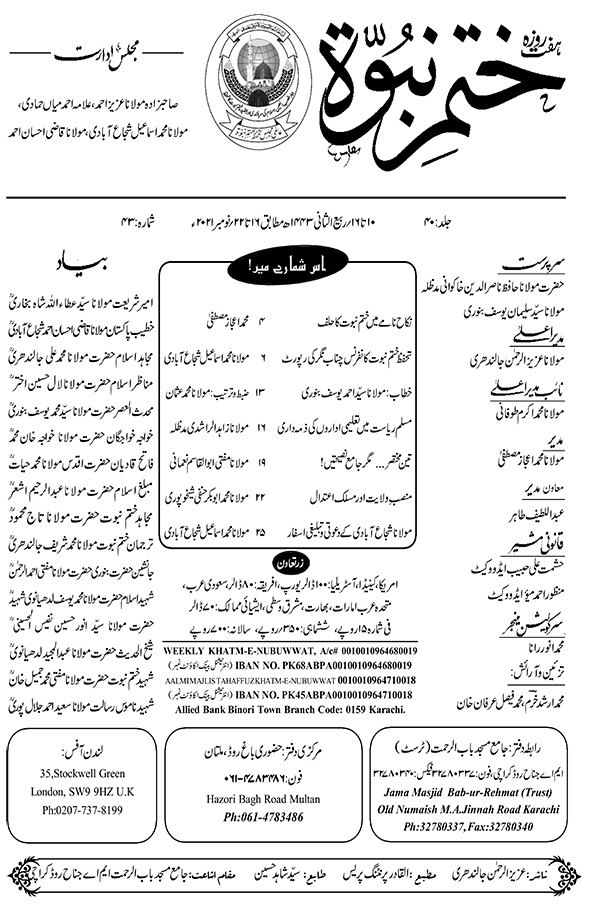 ہفت روزہ
ختم نبوّۃ
مجلس ادارت
صاحبزادہ مولانا عزیز احمد، علامہ احمد میاں حمادی،
مولانا محمد اسماعیل شجاع آبادی، مولانا قاضی احسان احمد
جلد: ۴۰ ۱۰ تا ۱۶ ربیع الثانی ۱۴۴۳ھ مطابق ۱۶ تا ۲۲ نومبر ۲۰۲۱ء شمارہ: ۴۳
سرپرست
حضرت مولانا حافظ ناصر الدین خاکوانی مدظلہ
مولانا سیّد سلیمان یوسف بنوری
مدیر اعلیٰ
مولانا عزیز الرحمٰن جالندھری
نائب مدیر اعلیٰ
مولانا محمد اکرم طوفانی
مدیر
مولانا محمد اعجاز مصطفیٰ
معاون مدیر
عبداللطیف طاہر
قانونی مشیر
حشمت علی حبیب ایڈووکیٹ
منظور احمد میؤ ایڈووکیٹ
سرکولیشن منیجر
محمد انور رانا
تزئین و آرائش:
محمد ارشد خرم، محمد فیصل عرفان خان
اس شمارے میں!
نکاح نامے میں ختم نبوت کا حلف ۴ محمد اعجاز مصطفیٰ
تحفظ ختم نبوت کانفرنس چناب نگر کی رپورٹ ۶ مولانا محمد اسماعیل شجاع آبادی
خطاب: مولانا سیّد احمد یوسف بنوری ۱۳ ضبط و ترتیب: مولانا محمد عثمان
مسلم ریاست میں تعلیمی اداروں کی ذمہ داری ۱۶ مولانا زاہد الراشدی مدظلہ
تین مختصر... مگر جامع نصیحتیں! ۱۹ مولانا مفتی ابوالقاسم نعمانی
منصب ولایت اور مسلک اعتدال ۲۲ مولانا محمد ابوبکر حنفی شیخوپوری
مولانا شجاع آبادی کے دعوتی و تبلیغی اسفار ۲۵ مولانا محمد اسماعیل شجاع آبادی
زر تعاون
امریکا، کینیڈا، آسٹریلیا: ۱۰۰ ڈالر یورپ، افریقہ: ۸۰ ڈالر، سعودی عرب،
متحدہ عرب امارات، بھارت، مشرق وسطیٰ، ایشیائی ممالک: ۷۰ ڈالر
فی شمارہ ۱۵ روپے، ششماہی: ۳۵۰ روپے، سالانہ: ۷۰۰ روپے
WEEKLY KHATM-E-NUBUWWAT, A/c# 0010010964680019
IBAN NO. PK68ABPA0010010964680019 (انٹرنیشنل بینک اکاؤنٹ نمبر)
AALMIMAJLISTAHAFFUZKHATM-E-NUBUWWAT 0010010964710018
IBAN NO. PK45ABPA0010010964710018 (انٹرنیشنل بینک اکاؤنٹ نمبر)
Allied Bank Binori Town Branch Code: 0159 Karachi.
بیاد
امیر شریعت مولانا سید عطاء اللہ شاہ بخاریؒ
خطیب پاکستان مولانا قاضی احسان احمد شجاع آبادیؒ
مجاہد اسلام حضرت مولانا محمد علی جالندھریؒ
مناظر اسلام حضرت مولانا لال حسین اخترؒ
محدث العصر حضرت مولانا سید محمد یوسف بنوریؒ
خواجہ خواجگان حضرت مولانا خواجہ خان محمدؒ
فاتح قادیان حضرت اقدس مولانا محمد حیاتؒ
مبلغ اسلام حضرت مولانا عبدالرحیم اشعرؒ
مجاہد ختم نبوت حضرت مولانا تاج محمودؒ
ترجمان ختم نبوت حضرت مولانا محمد شریف جالندھریؒ
جانشین حضرت بنوری حضرت مولانا مفتی احمد الرحمٰنؒ
شہید اسلام حضرت مولانا محمد یوسف لدھیانوی شہیدؒ
حضرت مولانا سید انور حسین نفیس الحسینیؒ
شیخ الحدیث حضرت مولانا عبدالمجید لدھیانویؒ
شہید ختم نبوت حضرت مولانا مفتی محمد جمیل خانؒ
شہید ناموس رسالت مولانا سعید احمد جلال پوریؒ
رابطہ دفتر: جامع مسجد باب الرحمت (ٹرسٹ)
ایم اے جناح روڈ کراچی، فون: ۳۲۷۸۰۳۳۷ فیکس: ۳۲۷۸۰۳۴۰
Jama Masjid Bab-ur-Rehmat (Trust)
Old Numaish M.A.Jinnah Road Karachi
Ph:32780337, Fax:32780340
مرکزی دفتر: حضوری باغ روڈ، ملتان
فون: ۴۷۸۳۴۸۶-۰۶۱
Hazori Bagh Road Multan
Ph:061-4783486
لندن آفس:
35,Stockwell Green
London, SW9 9HZ U.K
Ph:0207-737-8199
ناشر: عزیز الرحمٰن جالندھری مطبع: القادر پرنٹنگ پریس طابع: سیّد شاہد حسین مقام اشاعت: جامع مسجد باب الرحمت ایم اے جناح روڈ کراچی